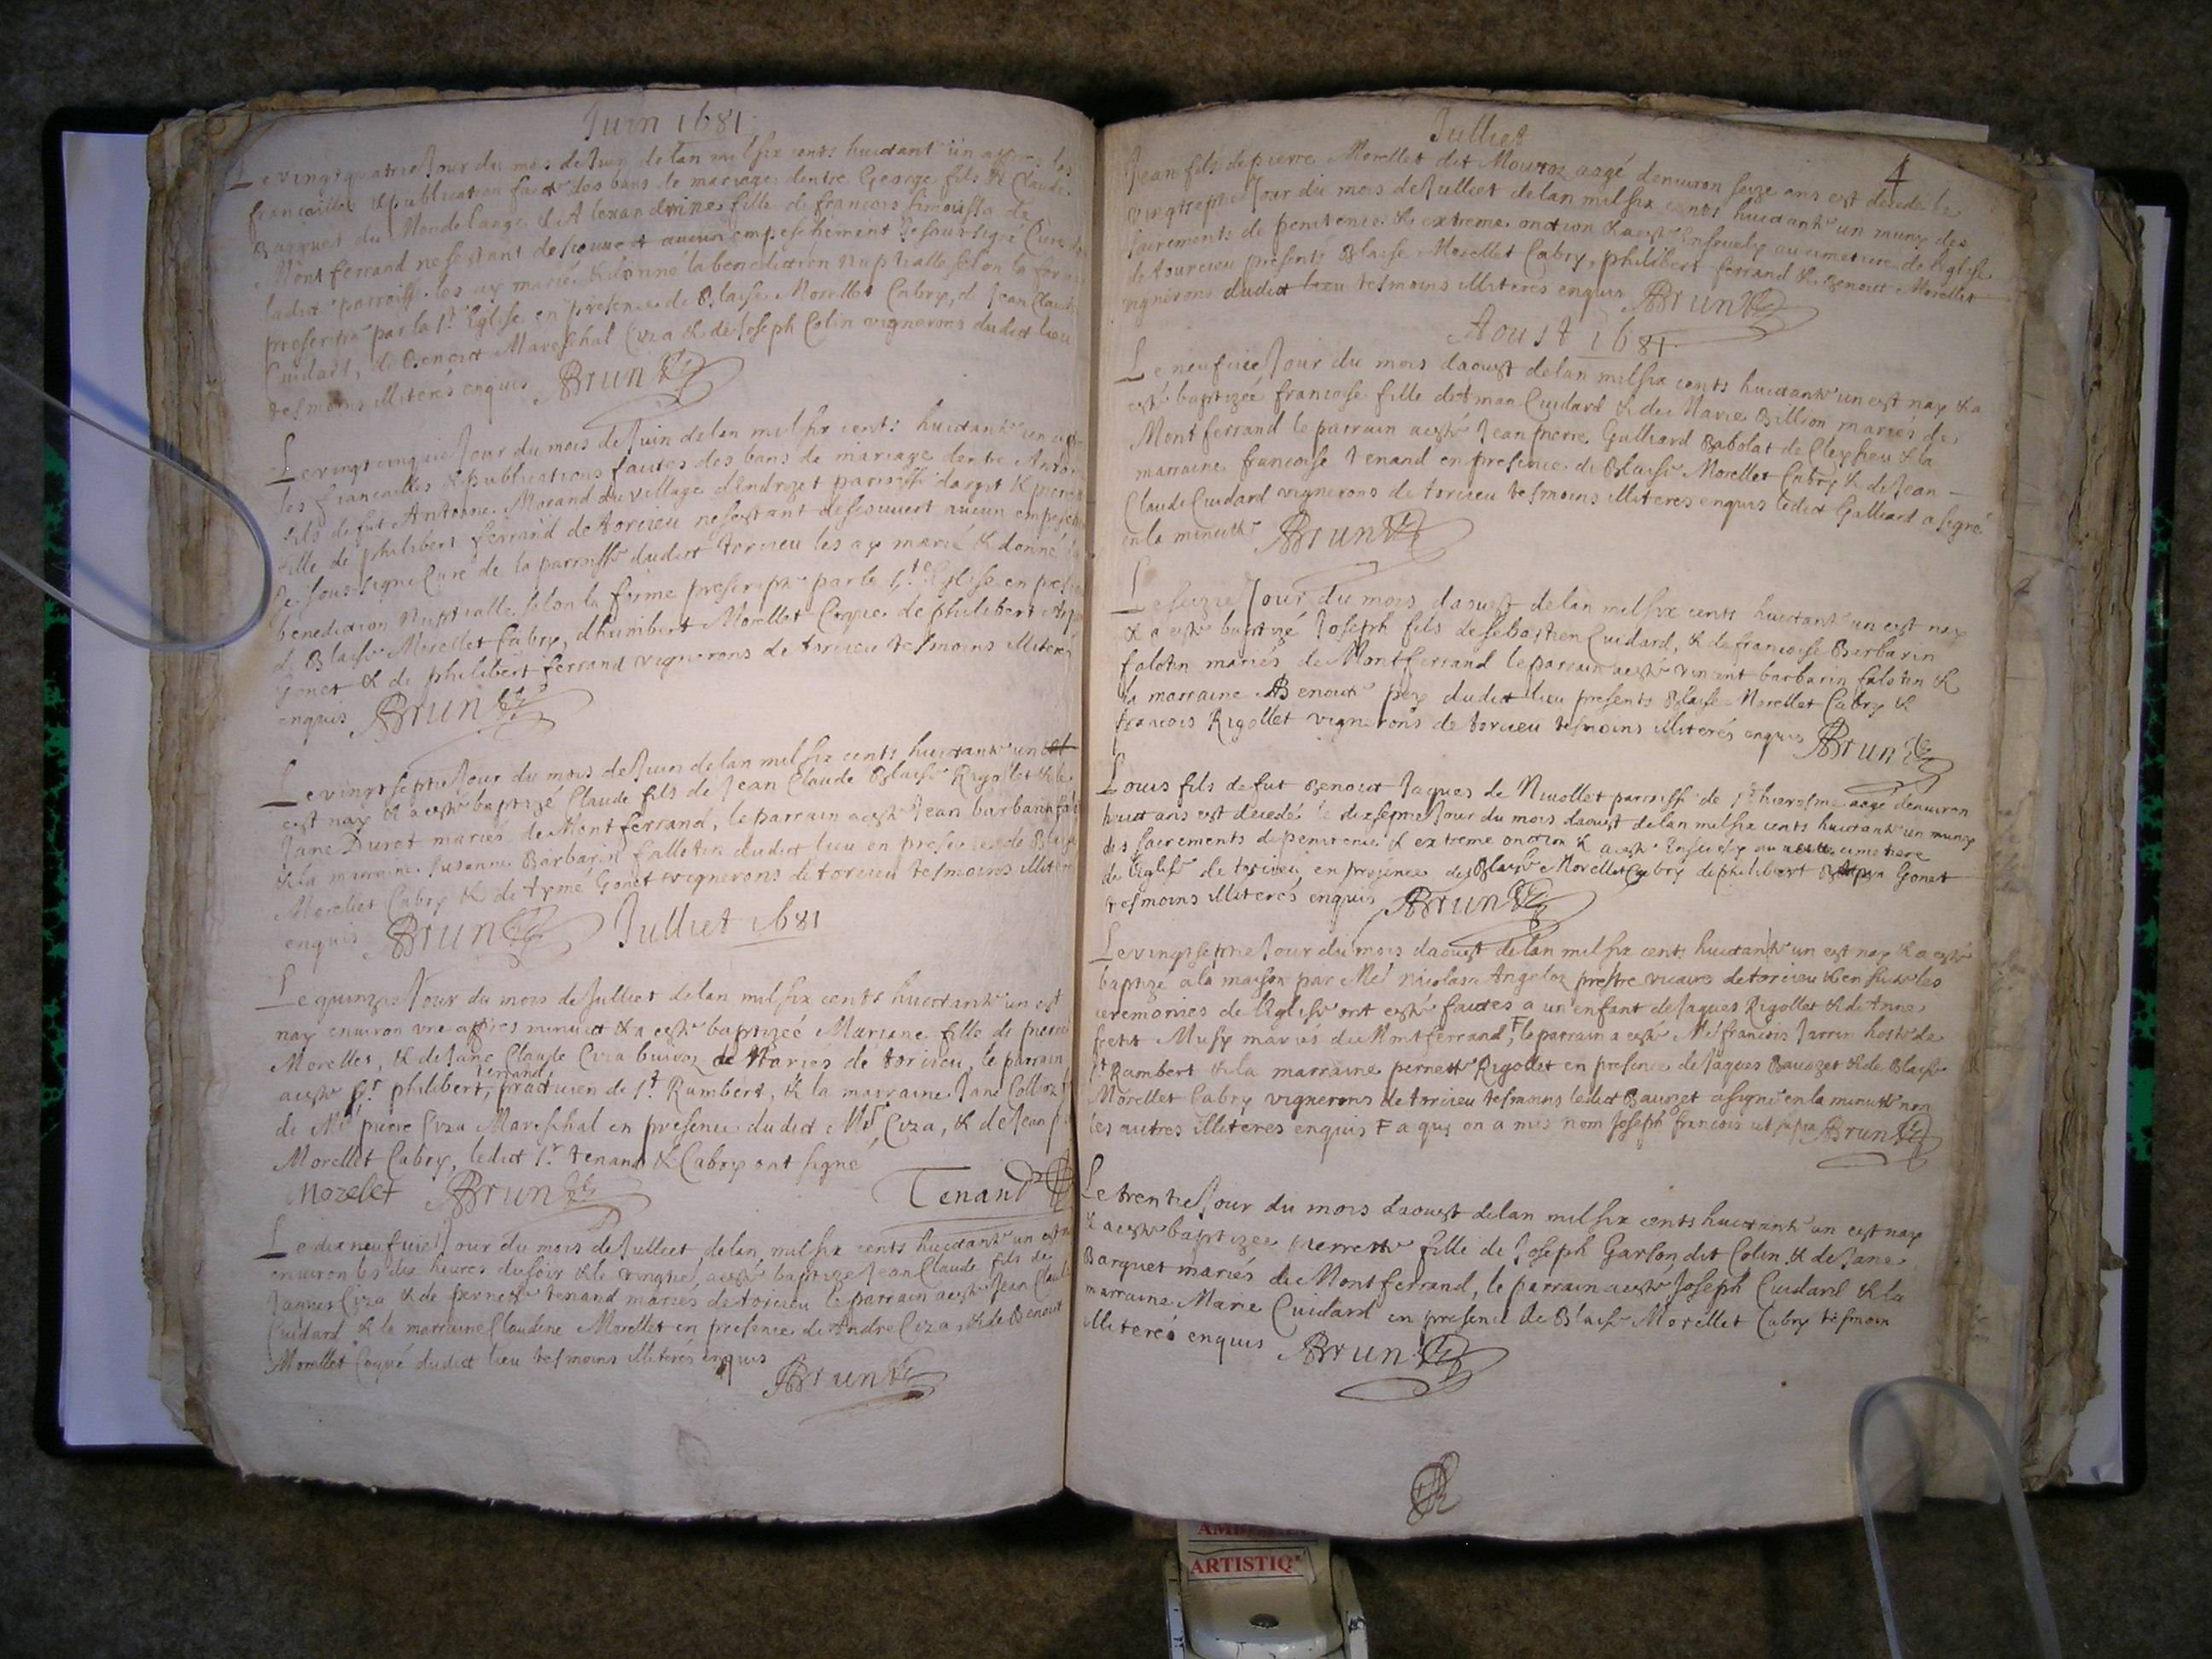 Juin 1681
Le vingt quatrie Jour du mois de Juin de lan mil six cents huictant un apres les
francailles & publication faict des bans de mariage dentre George fils de Claude
Barquet du Mondelange & Alexandrine fille de francois Simou de
Montferrand ne sestant descouvert aucun empeschement Je soussigné Curé
ladict parroisse les ay marié & donné la benediction nuptialle selon la forme
prescripte par la Ste Eglise en presence de Blaise Morellet Cabry, d Jean Claude
Cuidard, de Benoict Mareschal Ciza & de Joseph Colin vignerons dudict lieu
tesmoins illiterés enquis Brun
Le vingt cinquie Jour du mois de Juin de lan mil six cents huictant un
les francailles & publications faictes des bans de mariage dentre
fils de fut Antoine Morand du village dendrozet parroisse dargit &
fille de philibert ferrand de torcieu ne sestant descouvert aucun
Je sous signé Curé de la parroisse dudict torcieu les ay marié & donné
benediction nuptialle selon la forme prescripte par la Ste Eglise en
de Blaise Morellet Cabry, dhumbert Morellet Coque de philibert
Gonet & de philibert ferrand vignerons de torcieu tesmoins illiterés
enquis Brun
Le vingt septie Jour du mois de Juin de lan mil six cents huictant un
est nay & a esté baptizé Claude fils de Jean Claude Blaise Rigollet & de
Jane Durot mariés de Montferrand, le parrain a esté Jean barbarin
& la marraine Susanne Barbarin fallotin dudict lieu en presence de Blaise
Morellet Cabry & de Aymé Gonet vignerons de torcieu tesmoins illiterés
enquis Brun
Julliet 1681
Le quinzie Jour du mois de Julliet de lan mil six cents huictant un est
nay environ une apres minuict & a esté baptizée Mariane fille de pierre
Morellet, & de Jane Claude Ciza buivoz Mariés de torcieu, le parrain
a esté Sr philibert tenand, practicien de St Rambert, & la marraine Jane Colloz
de Me pierre Ciza Mareschal en presence dudict Mr Ciza, & de Jean
Morellet Cabry, ledict Sr tenand & Cabry ont signé
Mozelet Brun Tenand
Le dix neufuie Jour du mois de Julliet de lan mil six cents huictant un est
environ les dix heures du soir & le vingtie, a esté baptize Jean Claude fils de
Jaques Ciza & de pernette tenand mariés de torcieu le parrain a esté Jean Claude
Cuidard & la marraine Claudine Morellet en presence de Andre Ciza, & de Benoict
Morellet Coqué dudict lieu tesmoins illiterés enquis
Brun
Julliet
4
Jean fils de pierre Morellet dit Mouroz aagé denviron seize ans est decedé le
vingtseptie Jour du mois de Julliet de lan mil six cents huictant un muny des
sacrements de penitence & extreme onction & a esté Ensevely au cimetiere de leglise
de tourcieu presents Blaise Morellet Cabry, philibert ferrand & Benoict Morellet
vignerons dudict lieu tesmoins illiteres enquis Brun
Aoust 1681
Le neufuie Jour du mois daoust de lan mil six cents huictant un est nay & a
esté baptizée francoise fille de Aman Cuidard & de Marie Billion mariés de
Montferrand le parrain a esté Jean pierre Galliard Babolat de Cleyzieu & la
marraine francoise tenand en presence de Blaise Morellet Cabry & de Jean
Claude Cuidard vignerons de torcieu tesmoins illiteres enquis ledict Galliard a signé
en la minutte Brun
Le seizie Jour du mois daoust de lan mil six cents huictant un est nay
& a esté baptizé Joseph fils de sebastien Cuidard, & de francoise Barbarin
falotin mariés de Montferrand le parrain a esté vincent barbarin falotin &
la marraine Benoicte pery dudict lieu presents Blaise Morellet Cabry &
francois Rigollet vignerons de torcieu tesmoins illiterés enquis Brun
Louis fils de fut Benoict Jaques de Nivollet parroisse de St hierosme aagé denviron
huict ans est decedé le dixseptie Jour du mois daoust de lan mil six cents huictant un muny
des sacrements de penitence & extreme onction & a esté Ensevely au cimetiere
de leglise de torcieu en presence de Blaise Morellet Cabry de philibert Gonet
tesmoins illiterés enquis Brun
Le vingt septie Jour du mois daoust de lan mil six cents huictant un est nay & a esté
baptizé a la maison par Me Nicolas Angeloz prestre vicaire de torcieu & en suitte les
ceremonies de leglise ont esté faictes a un enfant de Jaques Rigollet & de Anne
petit Musy mariés de Montferrand, F le parrain a esté Me francois Jarrin hoste de
St Rambert & la marraine pernette Rigollet en presence de Jaques Bauozet & de Blaise
Morellet Cabry vignerons de torcieu tesmoins ledict Bauozet a signé en la minutte non
les autres illiteres enquis F a qui on a mis nom Joseph francois ut supra Brun
Le trentie Jour du mois daoust de lan mil six cents huictant un est nay
& a esté baptizee pierrette fille de Joseph Garson dit Colin & de Jane
Barquet mariés de Montferrand, le parrain a esté Joseph Cuidard & la
marraine Marie Cuidard en presence de Blaise Morellet Cabry tesmoin
illiterés enquis Brun
ARTISTIQ